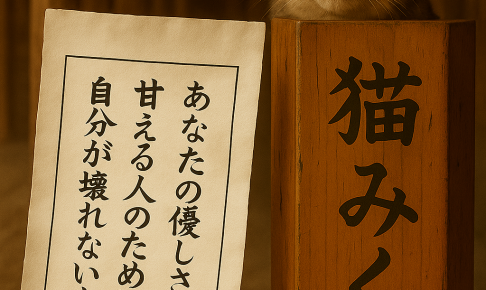 あなたの優しさ
甘える人のため
自分が壊れない
猫みく